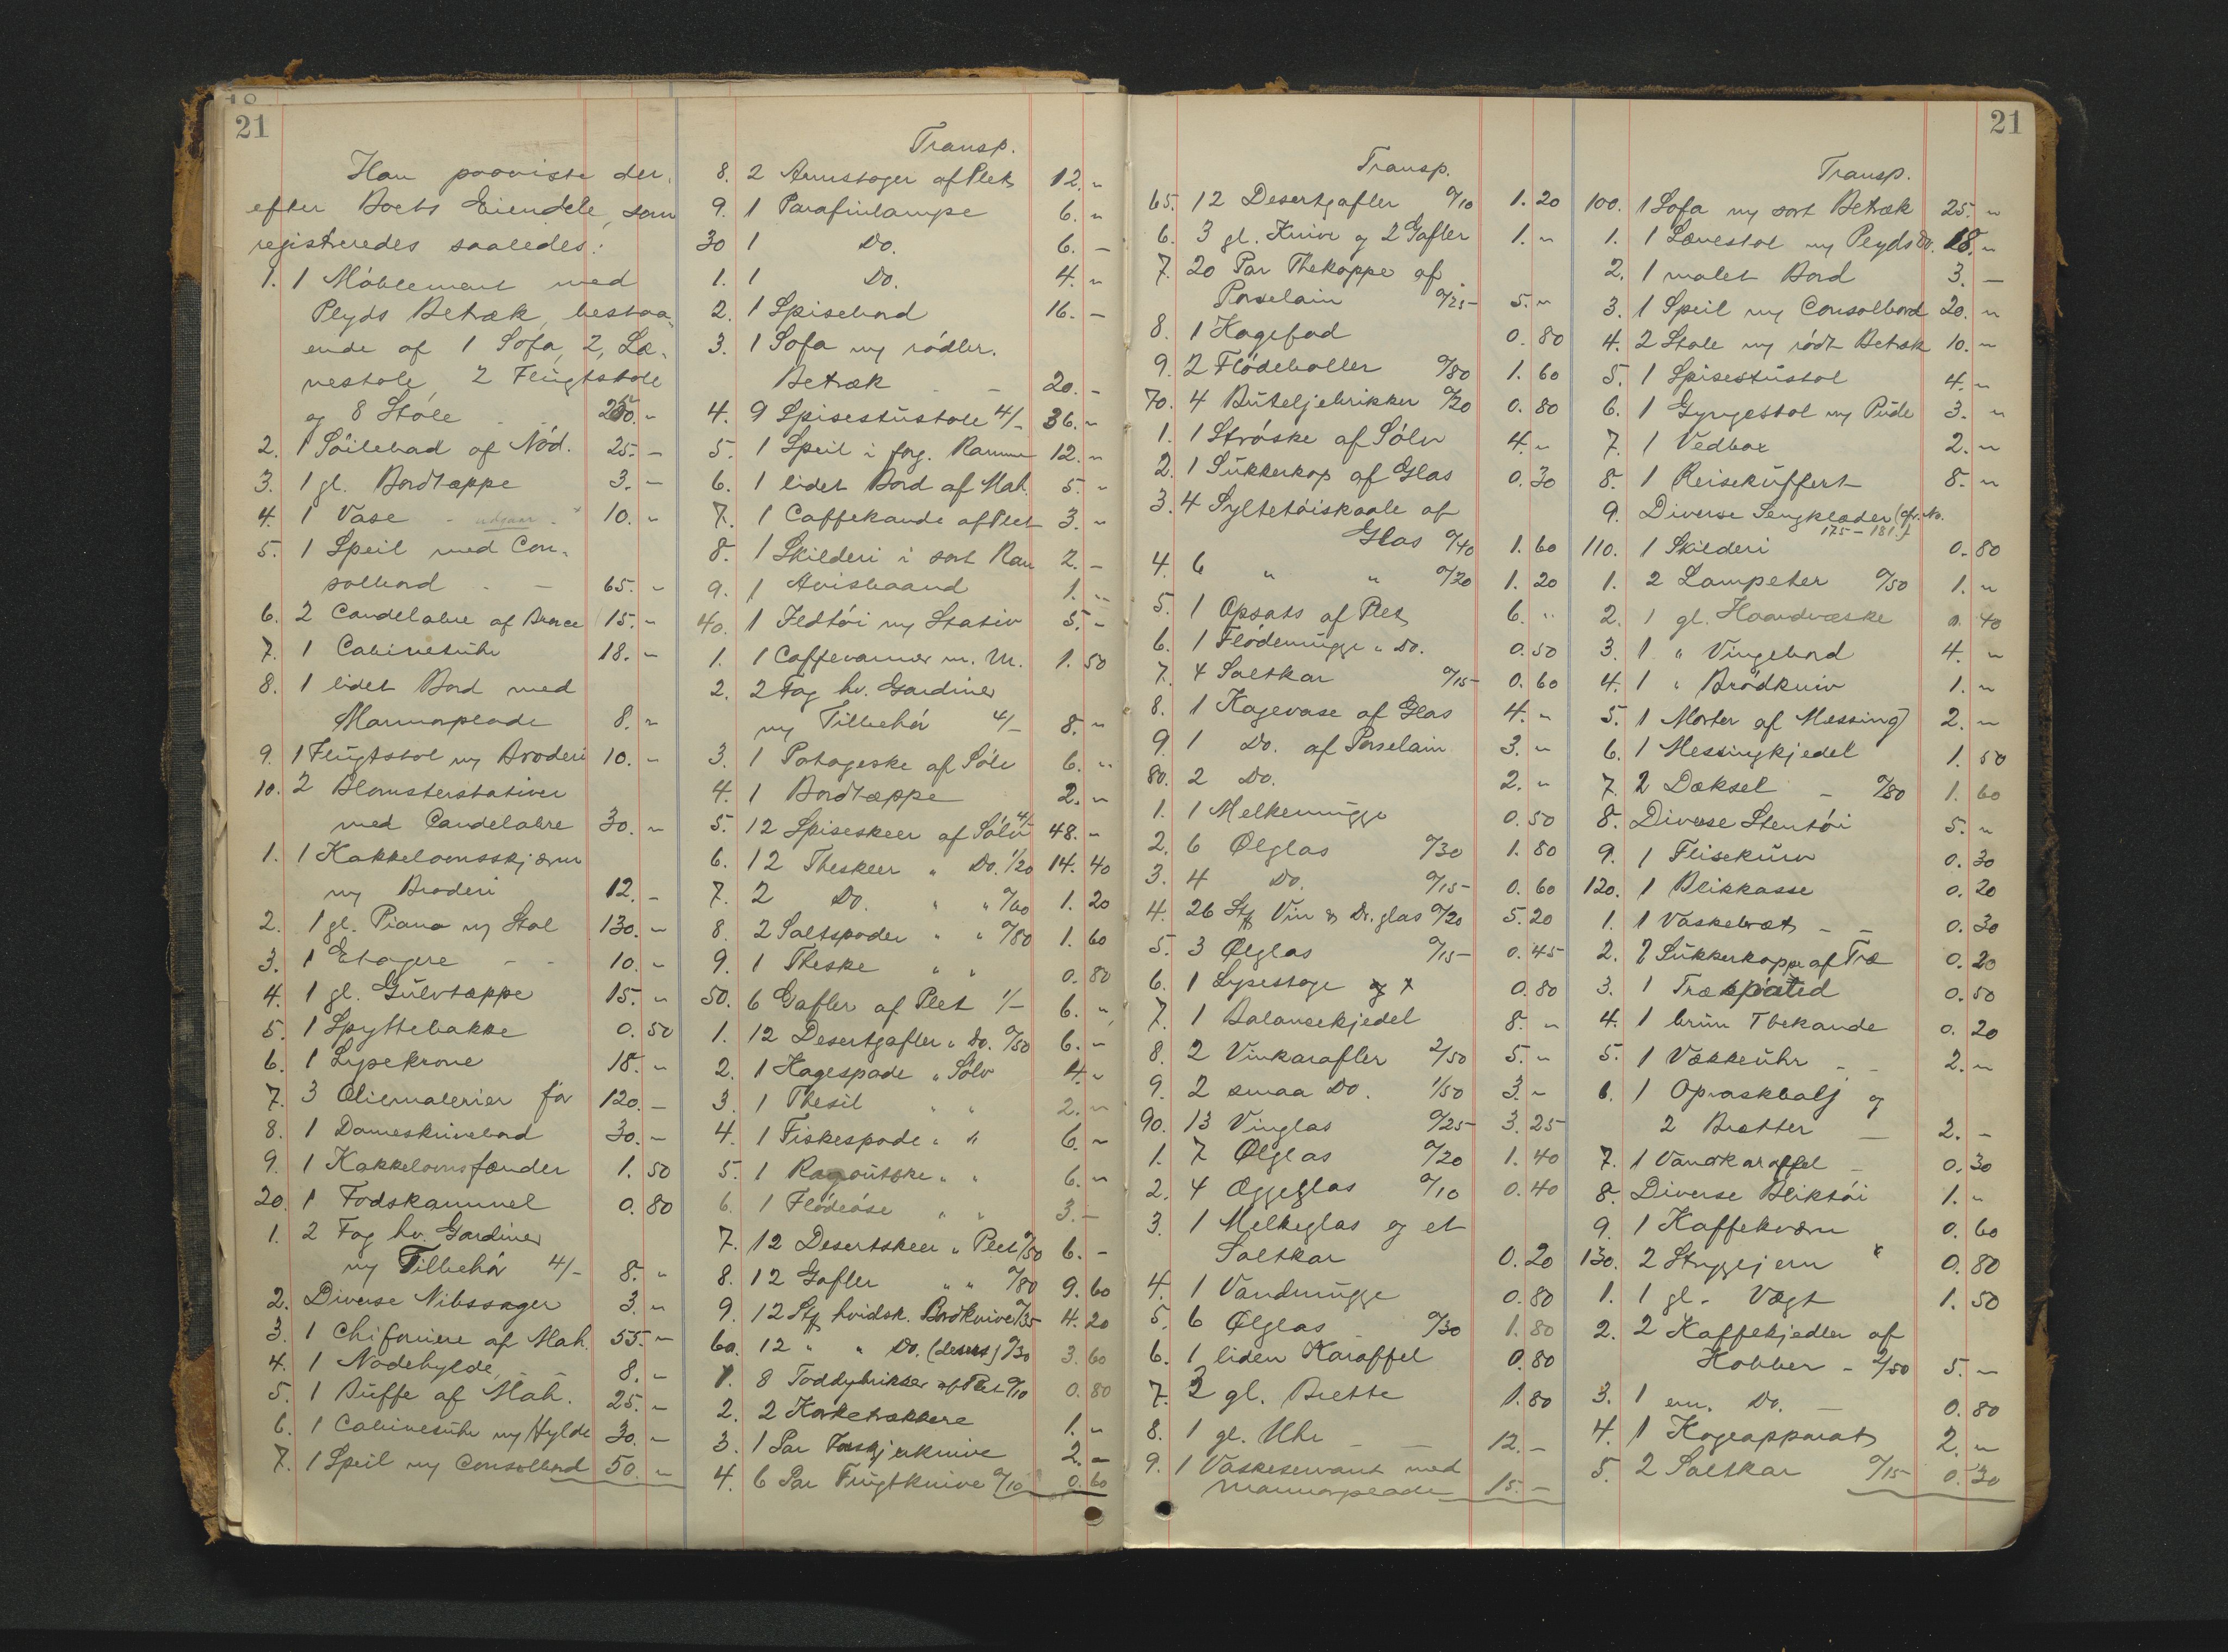 21
Han paaviste der,
efter Boets Eiendele, som
registreredes saaledes:
1. 1 Möblement med
Plyds Betræk, bestaa,
ende af 1 Sofa, 2, Læ,
nestole, 2 Flugtstole
og 8 Stole 250. "
2. 1 Söilebord af Nöd. 25. –
3. 1 gl. Bordtæppe 3. –
4. 1 Vase 10. "
5. 1 Speil med Con,
solbord – 65. "
6. 2 Candelabre af Bronce 15. "
7. 1 Cabinetsuhr 18. "
8. 1 lidet Bord med
Marmorplade 8. "
9. 1 Flugtstol m Broderi 10. "
10. 2 Blomsterstativer
med Candelabre 30. "
1. 1 Kakkelovnsskjærm
m Broderi 12. –
2. 1 gl. Piano m Stol 130. "
3. 1 Etagere – – 10. "
4. 1 gl. Gulvtæppe 15. "
5. 1 Spyttebakke 0.50
6. 1 Lysekrone 18. "
7. 3 Oliemalerier för 120. –
8. 1 Dameskrivebord 30. –
9. 1 Kakkelovnsfænder 1.50
20. 1 Fodskammel 0.80
1. 2 Fag hv. Gardiner
m Tilbehör 4/– 8. "
2. Diverse Nibssager 3. "
3. 1 Chifoniere af Mah. 55. "
4. 1 Nodehylde, – 8. "
5. 1 Buffe af Mah. 25. "
6. 1 Cabinetsuhr m Hylde 30. "
7. 1 Speil m Consolbord 50. "
Transp.
8. 2 Armstager af Plet 12. "
9. 1 Parafinlampe 6. "
30 1 Do. 6. –
1. 1 Do. 4. "
2. 1 Spisebord 16. –
3. 1 Sofa m rödbr.
Betræk – – 20. –
4. 9 Spisestustole 4/– 36. "
5. 1 Speil i forg. Ramme 12. "
6. 1 lidet Bord af Mah. 5. "
7. 1 Caffekande af Plet 3. "
8. 1 Skilderi i sort Ram 2. –
9. 1 Avisbaand 1. "
40. 1 Ildtöi m Stativ 5. –
1. 1 Caffevarmer m. M. 1.50
2. 2 Fag hv. Gardiner
m Tilbehör 4/– 8. "
3. 1 Potageske af Sölv 6. "
4. 1 Bordtæppe 2. "
5. 12 Spiseskeer af Sölv 4/– 48. "
6. 12 Theskeer " Do. 1/20 14.40
7. 2 Do. " " 0/60 1.20
8. 2 Saltspader " " 0/80 1.60
9. 1 Theske " " 0.80
50. 6 Gafler af Plet 1/– 6. "
1. 12 Desertgafler " Do. 0/50 6. –
2. 1 Kagespade " Sölv 4. "
3. 1 Thesil " " 2. "
4. 1 Fiskespade " " 6. "
5. 1 Ragoutske " " 6. "
6. 1 Flödeöse " " 3. –
7. 12 Desertskeer " Plet 0/50 6. –
8. 12 Gafler " " 0/80 9.60
9. 12 Stk hvidsk. Bordknive 0/35 4.20
60. 12 " " Do. (desert) 0/30 3.60
1. 8 Toddybrikker af Plet 0/10 0.80
2. 2 Korketrækkere 1. "
3. 1 Par Forskjærknive 2. –
4. 6 Par Frugtknive 0/10 0.60
21
Transp.
65. 12 Desertgafler 0/10 1.20
6. 3 gl. Knive og 2 Gafler 1. "
7. 20 Par Thekoppe af
Porselain 0/25 5. "
8. 1 Kagefad 0.80
9. 2 Flödeboller 0/80 1.60
70. 4 Buteljebrikker 0/20 0.80
1. 1 Ströske af Sölv 4. "
2. 1 Sukkerkop af Glas 0.30
3. 4 Syltetöiskaale af
Glas 0/40 1.60
4. 6 " " 0/20 1.20
5. 1 Opsats af Plet 6. "
6. 1 Flödemugge " Do. 0.50
7. 4 Saltkar 0/15 0.60
8. 1 Kagevase af Glas 4. "
9. 1 Do. af Porselain 3. "
80. 2 Do. 2. "
1. 1 Melkemugge 0.50
2. 6 Ölglas 0/30 1.80
3. 4 Do. 0/15 0.60
4. 26 Stk Vin & Dr. glas 0/20 5.20
5. 3 Ölglas 0/15 0.45
6. 1 Lysestage 0.80
7. 1 Balansekjedel 8. "
8. 2 Vinkarafler 2/50 5. "
9. 2 smaa Do. 1/50 3. "
90. 13 Vinglas 0/25 3.25
1. 7 Ölglas 0/20 1.40
2. 4 Æggeglas 0/10 0.40
3. 1 Melkeglas og et
Saltkar 0.20
4. 1 Vandmugge 0.80
5. 6 Ölglas 0/30 1.80
6. 1 liden Karaffel 0.80
7. 3 gl. Brette 1.80
8. 1 gl. Uhr – – 12. –
9. 1 Vaskeservant med
Marmorplade 15. –
Transp.
100. 1 Sofa m sort Betræk 25. "
1. 1 Lænestol m Plyds Do. 18. "
2. 1 malet Bord 3. –
3. 1 Speil m Consolbord 20. "
4. 2 Stole m rödt Betræk 10. "
5. 1 Spisestustol 4. "
6. 1 Gyngestol m Pude 3. "
7. 1 Vedbox 2. "
8. 1 Reisekuffert 8. "
9. Diverse Sengklæder (cfr. No.
175 – 181.)
110. 1 Skilderi 0.80
1. 2 Lampeter 0/50 1. "
2. 1 gl. Haandvæske 0.40
3. 1 " Vingebord 4. "
4. 1 " Brödkniv 1. "
5. 1 Morter af Messing 2. "
6. 1 Messingkjedel 1.50
7. 2 Dæksel – 0/80 1.60
8. Diverse Stentöi 5. "
9. 1 Flisekurv 0.30
120. 1 Blikkasse 0.20
1. 1 Vaskebræt – – 0.30
2. 2 Sukkerkoppe af Træ 0.20
3. 1 Træspisested 0.50
4. 1 brun Thekande 0.20
5. 1 Vækkeuhr – – 2. "
6. 1 Opvaskbalj og
2 Brætter – 2. –
7. 1 Vandkaraffel – 0.30
8. Diverse Bliktöi 1. "
9. 1 Kaffekværn 0.60
130. 2 Strygejern 0.80
1. 1 gl. Vægt 1.50
2. 2 Kaffekjedler af
Kobber – 2/50 5. –
3. 1 em. Do. – 0.80
4. 1 Kogeapparat 2. "
5. 2 Saltkar 0/15 0.30
21